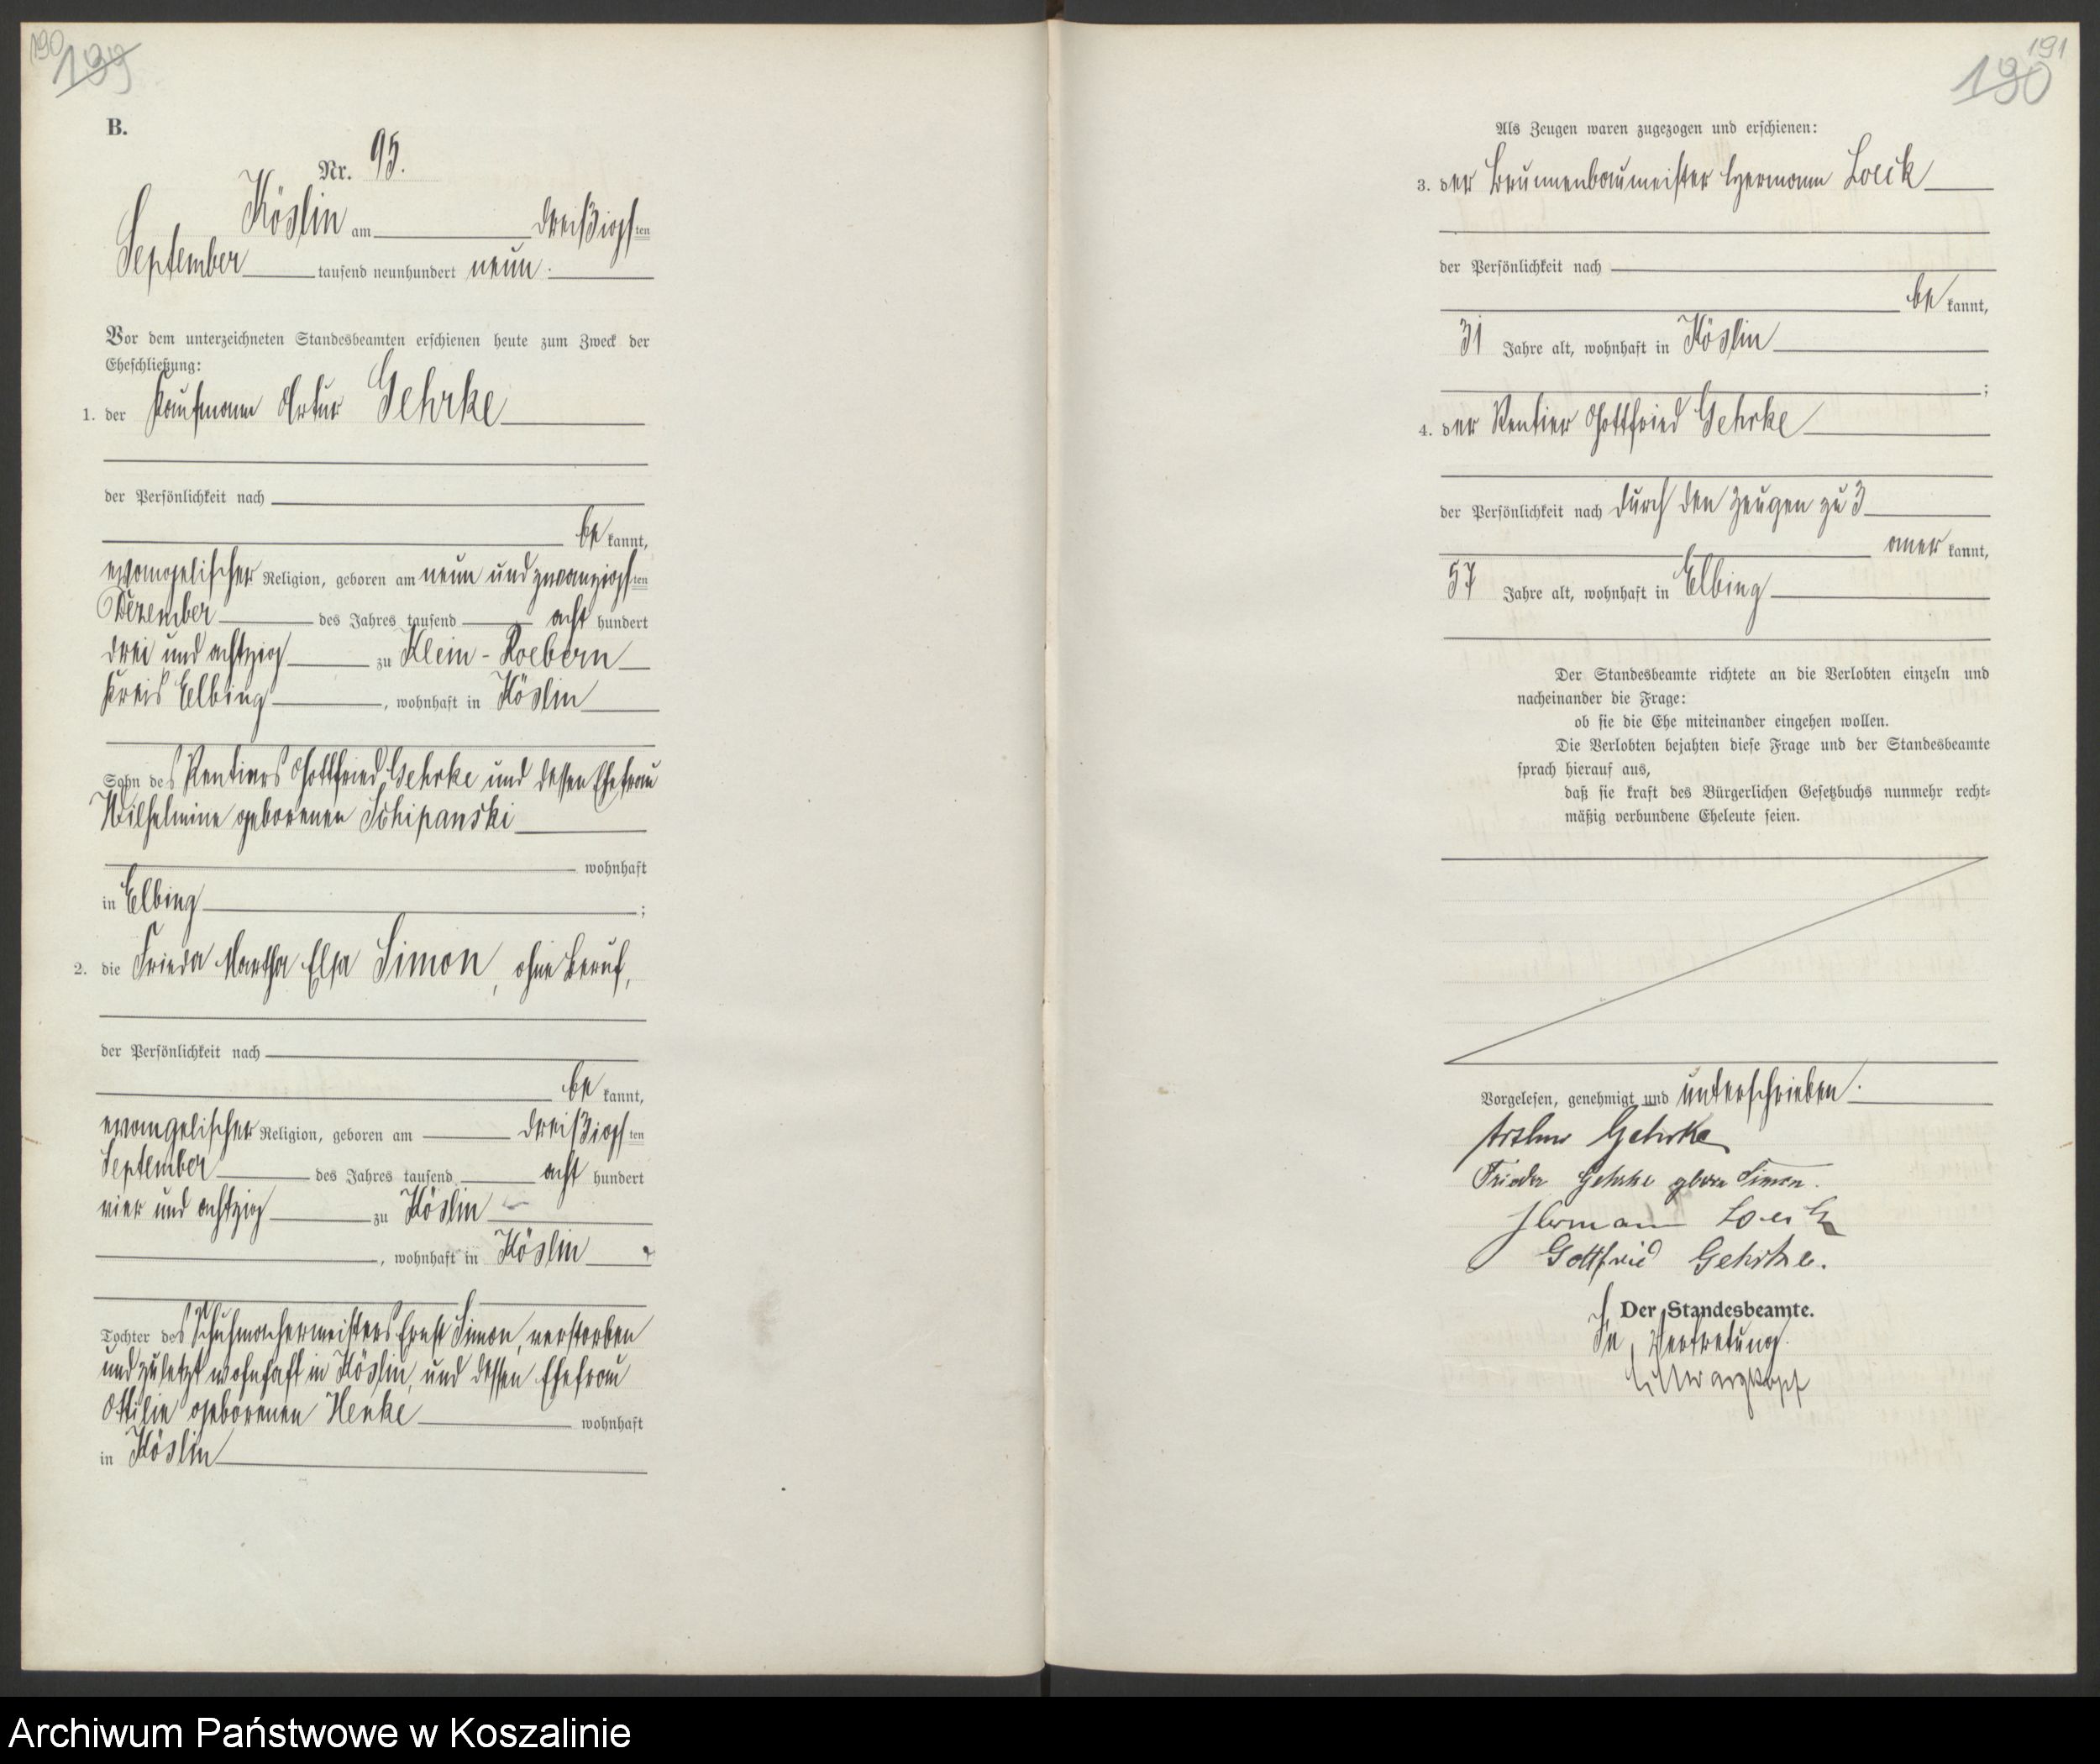 190
199
B.
Nr. 95.
Köslin am dreißigsten
September tausend neunhundert neun.
Vor dem unterzeichneten Standesbeamten erschienen heute zum Zweck der
Eheschließung:
1. der Kaufmann Artur Gehrke
der Persönlichkeit nach
bekannt,
evangelischer Religion, geboren am neun und zwanzigsten
Dezember des Jahres tausend acht hundert
drei und achtzig zu Klein-Roebern
Kreis Elbing, wohnhaft in Köslin
Sohn des Rentiers Gottfried Gehrke und dessen Ehefrau
Wilhelmine geborenen Schipanski
wohnhaft
in Elbing;
2. die Frieda Martha Elsa Simon, ohne Beruf,
der Persönlichkeit nach
bekannt,
evangelischer Religion, geboren am dreißigsten
September des Jahres tausend acht hundert
vier und achtzig zu Köslin
, wohnhaft in Köslin
Tochter des Schuhmachermeisters Ernst Simon, verstorben
und zuletzt wohnhaft in Köslin, und dessen Ehefrau
Ottilie geborenen Henke wohnhaft
in Köslin
191
190
Als Zeugen waren zugezogen und erschienen:
3. der Brunnenbaumeister Hermann Loeck
der Persönlichkeit nach
bekannt,
31 Jahre alt, wohnhaft in Köslin
;
4. der Rentier Gottfried Gehrke
der Persönlichkeit nach durch den Zeugen zu 3
anerkannt,
57 Jahre alt, wohnhaft in Elbing
Der Standesbeamte richtete an die Verlobten einzeln und
nacheinander die Frage:
ob sie die Ehe miteinander eingehen wollen.
Die Verlobten bejahten diese Frage und der Standesbeamte
sprach hierauf aus,
daß sie kraft des Bürgerlichen Gesetzbuchs nunmehr recht-
mäßig verbundene Eheleute seien.
Vorgelesen, genehmigt und unterschrieben.
Arthur Gehrke
Frieda Gehrke geborn Simon.
Hermann Loeck
Gottfried Gehrke.
Der Standesbeamte.
In Vertretung.
Archiwum Państwowe w Koszalinie